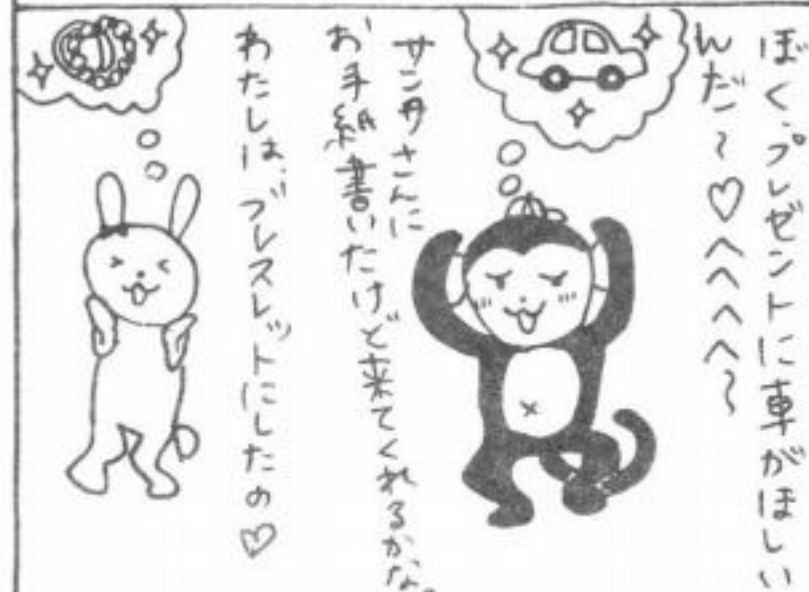 ぼく、プレゼントに車がほしい
んだ～♡へへへへ～
サンタさんに
お手紙書いたけど来てくれるかな。
わたしは、ブレスレットにしたの♡